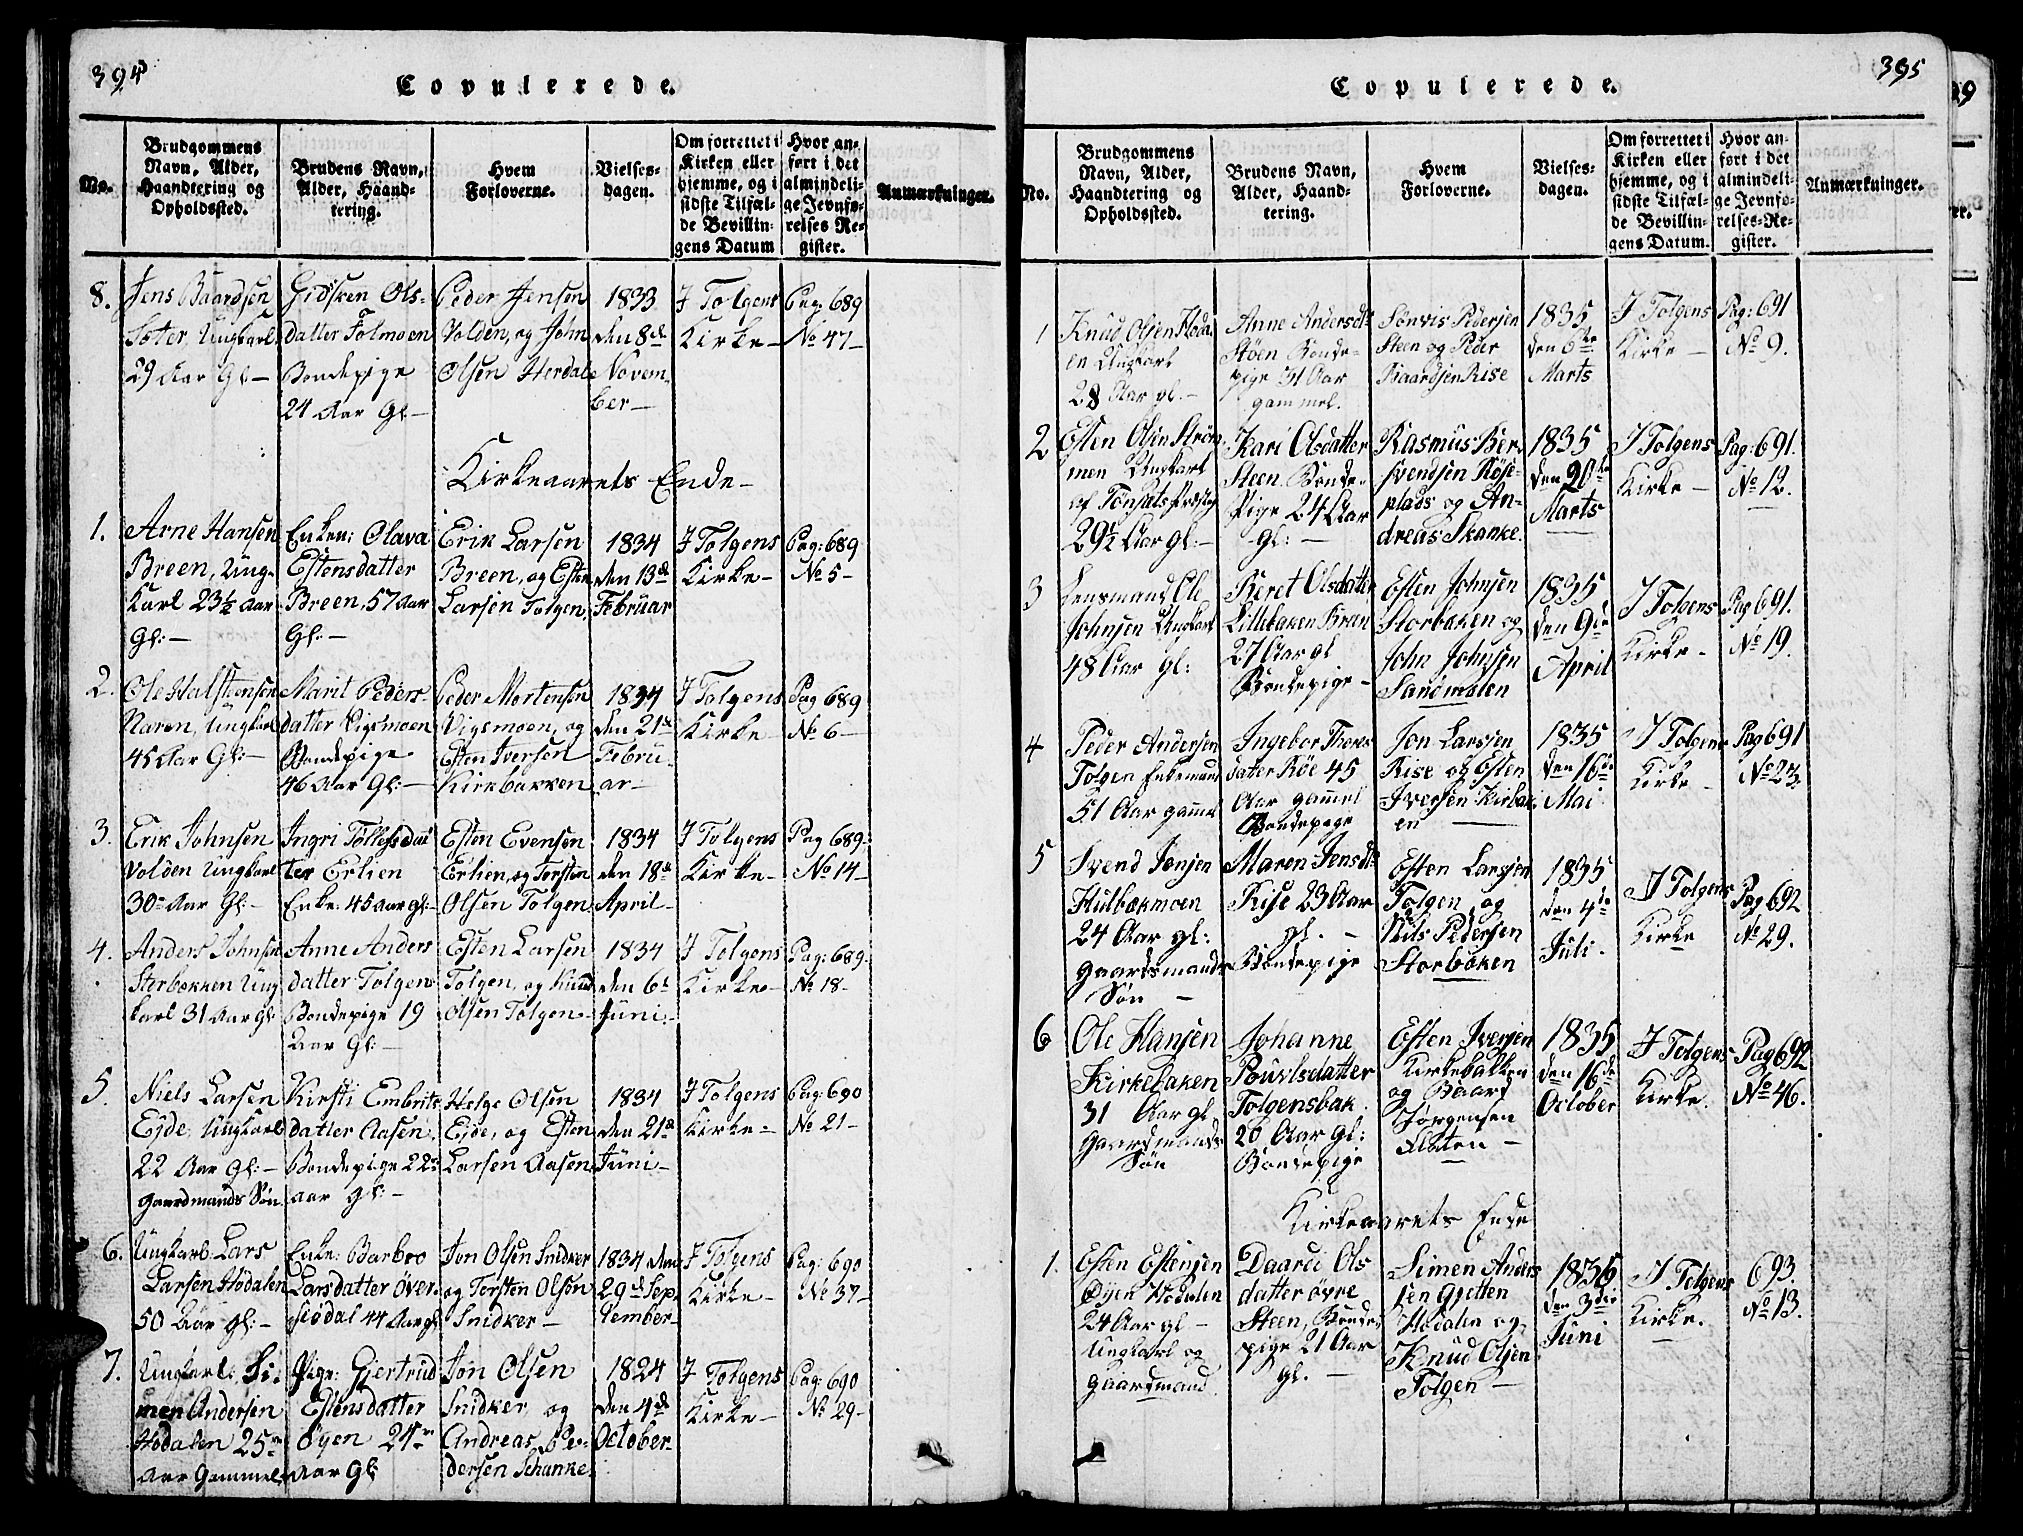 394
Copulerede.
No.
Brudgommens
Navn, Alder,
Haandtering og
Opholdssted.
Brudens Navn,
Alder, Haand-
tering.
Hvem
Forloverne.
Vielses-
dagen.
Om forrettet i
Kirken eller
hjemme, og i
sidste Tilfæl-
de Bevillin-
gens Datum
Hvor an-
ført i det
almindeli-
ge Jevnfø-
relses-Re-
gister.
Anmærkninger.
8.
Jens Baardsen
Ungkarl
29 Aar Gl:
Gidsken Ols-
datter Folmoen
Bondepige
24 Aar Gl:
Peder Jensen
Volden, og John
Olsen Herdal
1833
den 8de
Novem-
ber
I Tolgens
Kirke
Pag: 689
No 47
Kirkeaarets Ende
1.
Arne Hansen
Breen, Ung-
Karl 23½ Aar
Gl:
Enken: Olava
Estensdatter
Breen, 57 Aar
Gl:
Erik Larsen
Breen, og Esten
Larsen Tolgen
1834
den 13de
Februar
I Tolgens
Kirke
Pag: 689
No 5
2.
Ole Halstensen
Ungkarl
45 Aar Gl:
Marit Peders-
datter Vigsmoen
Bondepige
46 Aar Gl:
Peder Mortensen
Vigsmoen, og
Esten Iversen
Kirkbakken
1834
den 21de
Febru-
ar
I Tolgens
Kirke
Pag 689
No 6
3.
Erik Johnsen
Volden Ungkarl
30 Aar Gl:
Ingri Tollefsdat-
ter Erlien
Enke: 45 Aar gl:
Esten Evensen
Erlien, og Torsten
Olsen Tolgen
1834
den 18de
April
I Tolgens
Kirke
Pag 689
No 14
4.
Anders Johnsen
Storbekken Ung
karl 31 Aar Gl:
Anne Anders
datter Tolgen
Bondepige 19
Aar Gl:
Esten Larsen
Tolgen, og Knud
Olsen Tolgen
1834
den 6te
Juni
I Tolgens
Kirke
Pag: 689
No 18
5.
Niels Larsen
Eide, Ungkarl
22 Aar Gl:
Gaardmands Søn
Kirsti Embrits
datter Aasen
Bondepige 22
aar gl:
Helge Olsen
Eide, og Esten
Larsen Aasen
1834
den 21de
Juni
I Tolgens
Kirke
Pag: 690
No 21
6.
Ungkarl: Lars
Larsen Hodalen
50 Aar gl:
Enke: Barbro
Larsdatter Øver-
siødal 44 Aar gl
Jon Olsen Snidker
og Torsten Olsen
Snidker
1834 den
29de Sep-
tember
I Tolgens
Kirke
Pag: 690
No 37
7.
Ungkarl: Si-
men Andersen
Hodalen 25
Aar Gammel
Pige: Gjertrud
Estensdatter
Øyen 24
Aar Gl
Jon Olsen
Snidker og
Andreas Pe-
dersen Schanke
1824
den 4de
October
I Tolgens
Kirke
Pag: 690
No 29
395
Copulerede.
No.
Brudgommens
Navn, Alder,
Haandtering og
Opholdssted.
Brudens Navn,
Alder, Haand-
tering.
Hvem
Forloverne.
Vielses-
dagen.
Om forrettet i
Kirken eller
hjemme, og i
sidste Tilfæl-
de Bevillin-
gens Datum.
Hvor an-
ført i det
almindeli-
ge Jevnfø-
relses-Re-
gister.
Anmærkninger.
1
Knud Olsen Hoda
en Ungkarl
28 Aar gl.
Anne Andersdt
Støen Bonde-
pige 31 Aar
gammel.
Sønvis Pedersen
Steen og Peder
Baardsen Rise
1835
den 6te
Marts
I Tolgens
Kirke
Pag: 691
No 9.
2
Esten Olsen Strøm
men Ungkarl
af Tønsæts Præstegj
29½ Aar gl:
Kari Olsdatter
Steen Bonde-
Pige 24 Aar
gl:
Rasmus Ber-
svendsen Røse-
plads og An-
dreas Skanke.
1835
den 20de
Marts
I Tolgens
Kirke
Pag: 691.
No 12.
3
Lensmand Ole
Johnsen Ungkarl
48 Aar gl:
Beret Olsdatter
Lillebaken Breen
27 Aar gl
Bondepige
Esten Johnsen
Storbaken og
John Johnsen
Sandmælen
1835
den 9de
April
I Tolgens
Kirke
Pag 691.
No 19.
4
Peder Andersen
Tolgen Enkemand
51 Aar gammel
Ingebor Thores
datter Røe 45
Aar gammel
Bondepige
Jon Larssen
Rise og Esten
Iversen Kirbak
en
1835
den 16de
Mai
I Tolgens
Kirke
Pag 691
No 23.
5
Svend Jensen
Hulbækmoen
24 Aar gl:
Gaardsmands
Søn
Maren Jensdt
Rise 23 Aar
gl.
Bondepige
Esten Larssen
Tolgen og
Nils Pedersen
Storbøken
1835
den 4de
Juli
I Tolgens
Kirke
Pag 692
No 29.
6
Ole Hansen
Kirkebaken
31 Aar gl
Gaardmands
Søn
Johanne
Pouvlsdatter
Tolgensbak
26 Aar gl:
Bondepige
Esten Iversen
Kirkebakken
og Baart
Jørgensen
1835
den 16de
October
I Tolgens
Kirke.
Pag 692
No 46.
Kirkeaarets Ende
1.
Esten Estensen
Øyen Hodalen
24 Aar gl
Ungkarl og
Gaardmand
Daardi Ols
datter øvre
Steen, Bonde-
pige 21 Aar
gl.
Simen Anders
sen Gjetten
Hodalen og
Knud Olsen
Tolgen
1836
den 3die
Juni
I Tolgens
Kirke.
693.
No 13.